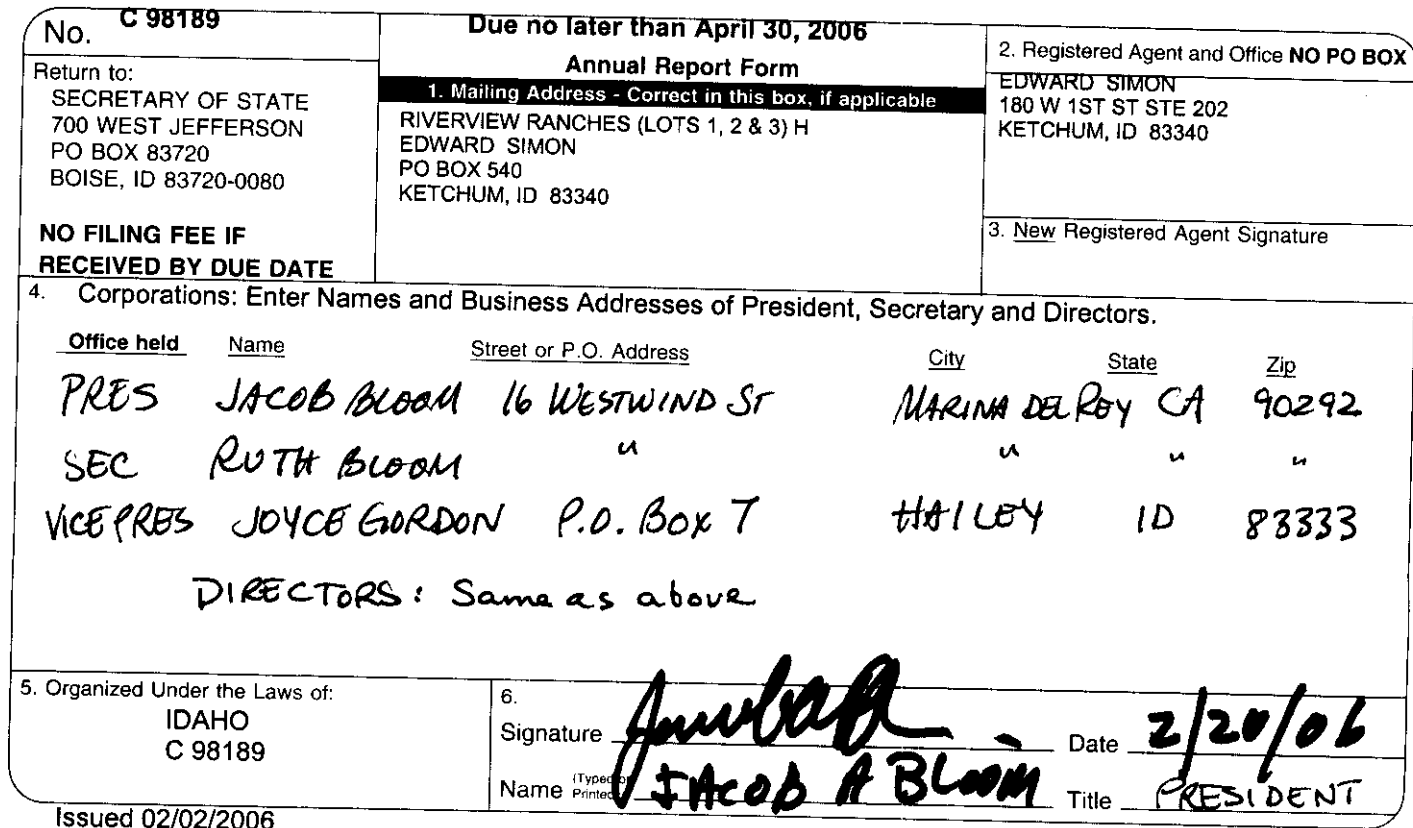 No. C 98189
Due no later than April 30, 2006
Annual Report Form
Return to:
SECRETARY OF STATE
700 WEST JEFFERSON
PO BOX 83720
BOISE, ID 83720-0080
NO FILING FEE IF
RECEIVED BY DUE DATE
1. Mailing Address - Correct in this box, if applicable
RIVERVIEW RANCHES (LOTS 1, 2 & 3) H
EDWARD SIMON
PO BOX 540
KETCHUM, ID 83340
2. Registered Agent and Office NO PO BOX
EDWARD SIMON
180 W 1ST ST STE 202
KETCHUM, ID 83340
3. New Registered Agent Signature
4. Corporations: Enter Names and Business Addresses of President, Secretary and Directors.
Office held Name Street or P.O. Address City State Zip
PRES JACOB BLOOM 16 WESTWIND ST MARINA DEL REY CA 90292
SEC RUTH BLOOM " " " "
VICE PRES JOYCE GORDON P.O. Box 7 HAILEY ID 83333
DIRECTORS: Same as above
5. Organized Under the Laws of:
IDAHO
C 98189
6.
Signature Date 2/20/06
Name (Typed or Printed) JACOB A BLOOM Title PRESIDENT
Issued 02/02/2006